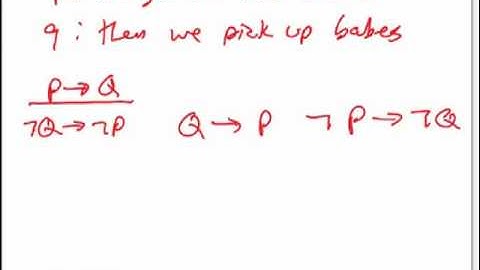 q : then we pick up babes
P → Q
¬Q → ¬P Q → P ¬P → ¬Q